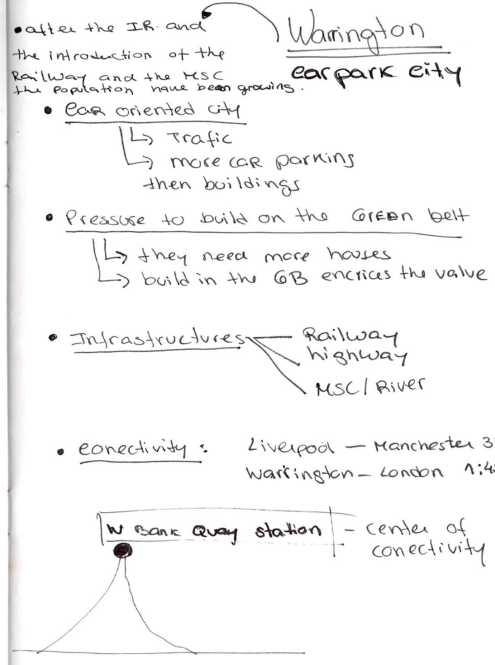 • after the IR. and
the introduction of the
Railway and the MSC
the population have been growing.
Warrington
carpark city
• car oriented city
↳ Trafic
↳ more car parking
then buildings
• Pressure to build on the GREEN belt
↳ they need more houses
↳ build in the GB encrices the value
• Infrastructures — Railway
highway
MSC / River
• conectivity : Liverpool — Manchester 3
Warrington — London 1:4
W Bank Quay station – center of
conectivity